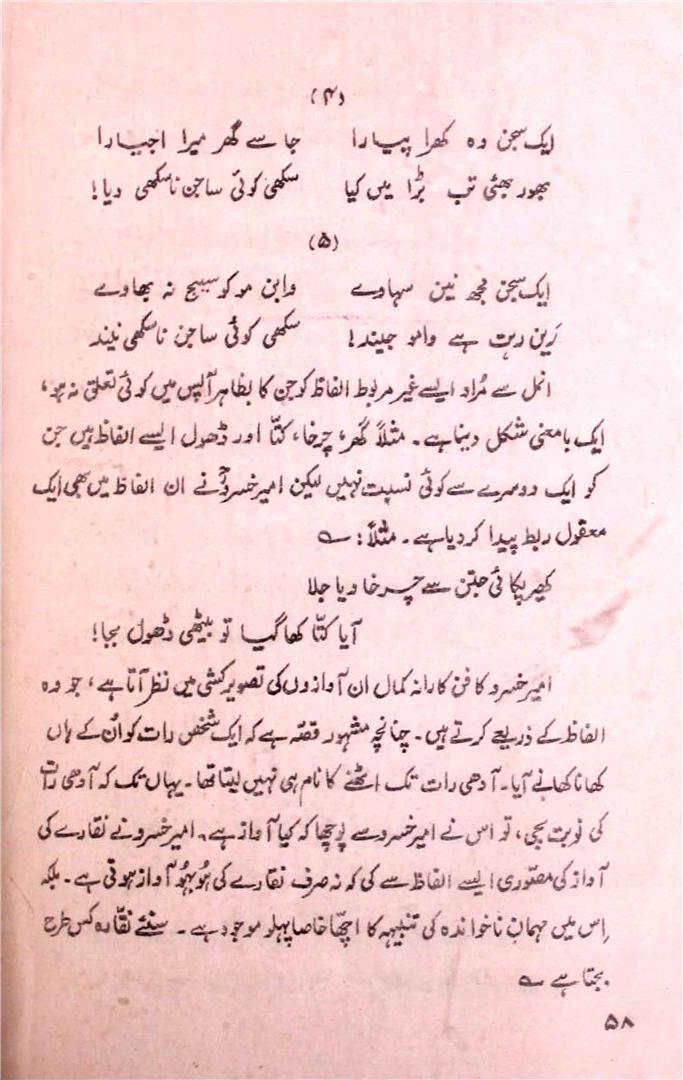 (۴)
ایک سجن وہ کھرا پیارا جا سے گھر میرا اجیارا
بھور بھئی تب بڑا میں کیا سکھی کوئی ساجن نا سکھی دیا!
(۵)
ایک سجن مجھ نین سہاوے وا بن مو کو سیج نہ بھاوے
رَین رہت ہے وامو جیند! سکھی کوئی ساجن نا سکھی نیند
انمل سے مُراد ایسے غیر مربوط الفاظ کو جن کا بظاہر آپس میں کوئی تعلق نہ ہو،
ایک بامعنی شکل دینا ہے۔ مثلاً گھر، چرخا، کتّا اور ڈھول ایسے الفاظ ہیں جن
کو ایک دوسرے سے کوئی نسبت نہیں لیکن امیر خسروؒ نے ان الفاظ میں بھی ایک
معقول ربط پیدا کر دیا ہے۔ مثلاً: ؎
کھیر پکائی جتن سے چرخا دیا جلا
آیا کتّا کھا گیا تو بیٹھی ڈھول بجا!
امیر خسرو کا فن کارانہ کمال ان آوازوں کی تصویر کشی میں نظر آتا ہے، جو وہ
الفاظ کے ذریعے کرتے ہیں۔ چنانچہ مشہور قصّہ ہے کہ ایک شخص رات کو اُن کے ہاں
کھانا کھانے آیا۔ آدھی رات تک اٹھنے کا نام ہی نہیں لیتا تھا۔ یہاں تک کہ آدھی رات
کی نوبت بجی، تو اس نے امیر خسرو سے پوچھا کہ کیا آواز ہے۔ امیر خسرو نے نقارے کی
آواز کی مصوّری ایسے الفاظ سے کی کہ نہ صرف نقارے کی ہُوبہُو آواز ہوتی ہے۔ بلکہ
اِس میں مہمانِ ناخواندہ کی تنبیہہ کا اچھّا خاصا پہلو موجود ہے۔ سنئے نقّارہ کس طرح
بجتا ہے ؎
۵۸